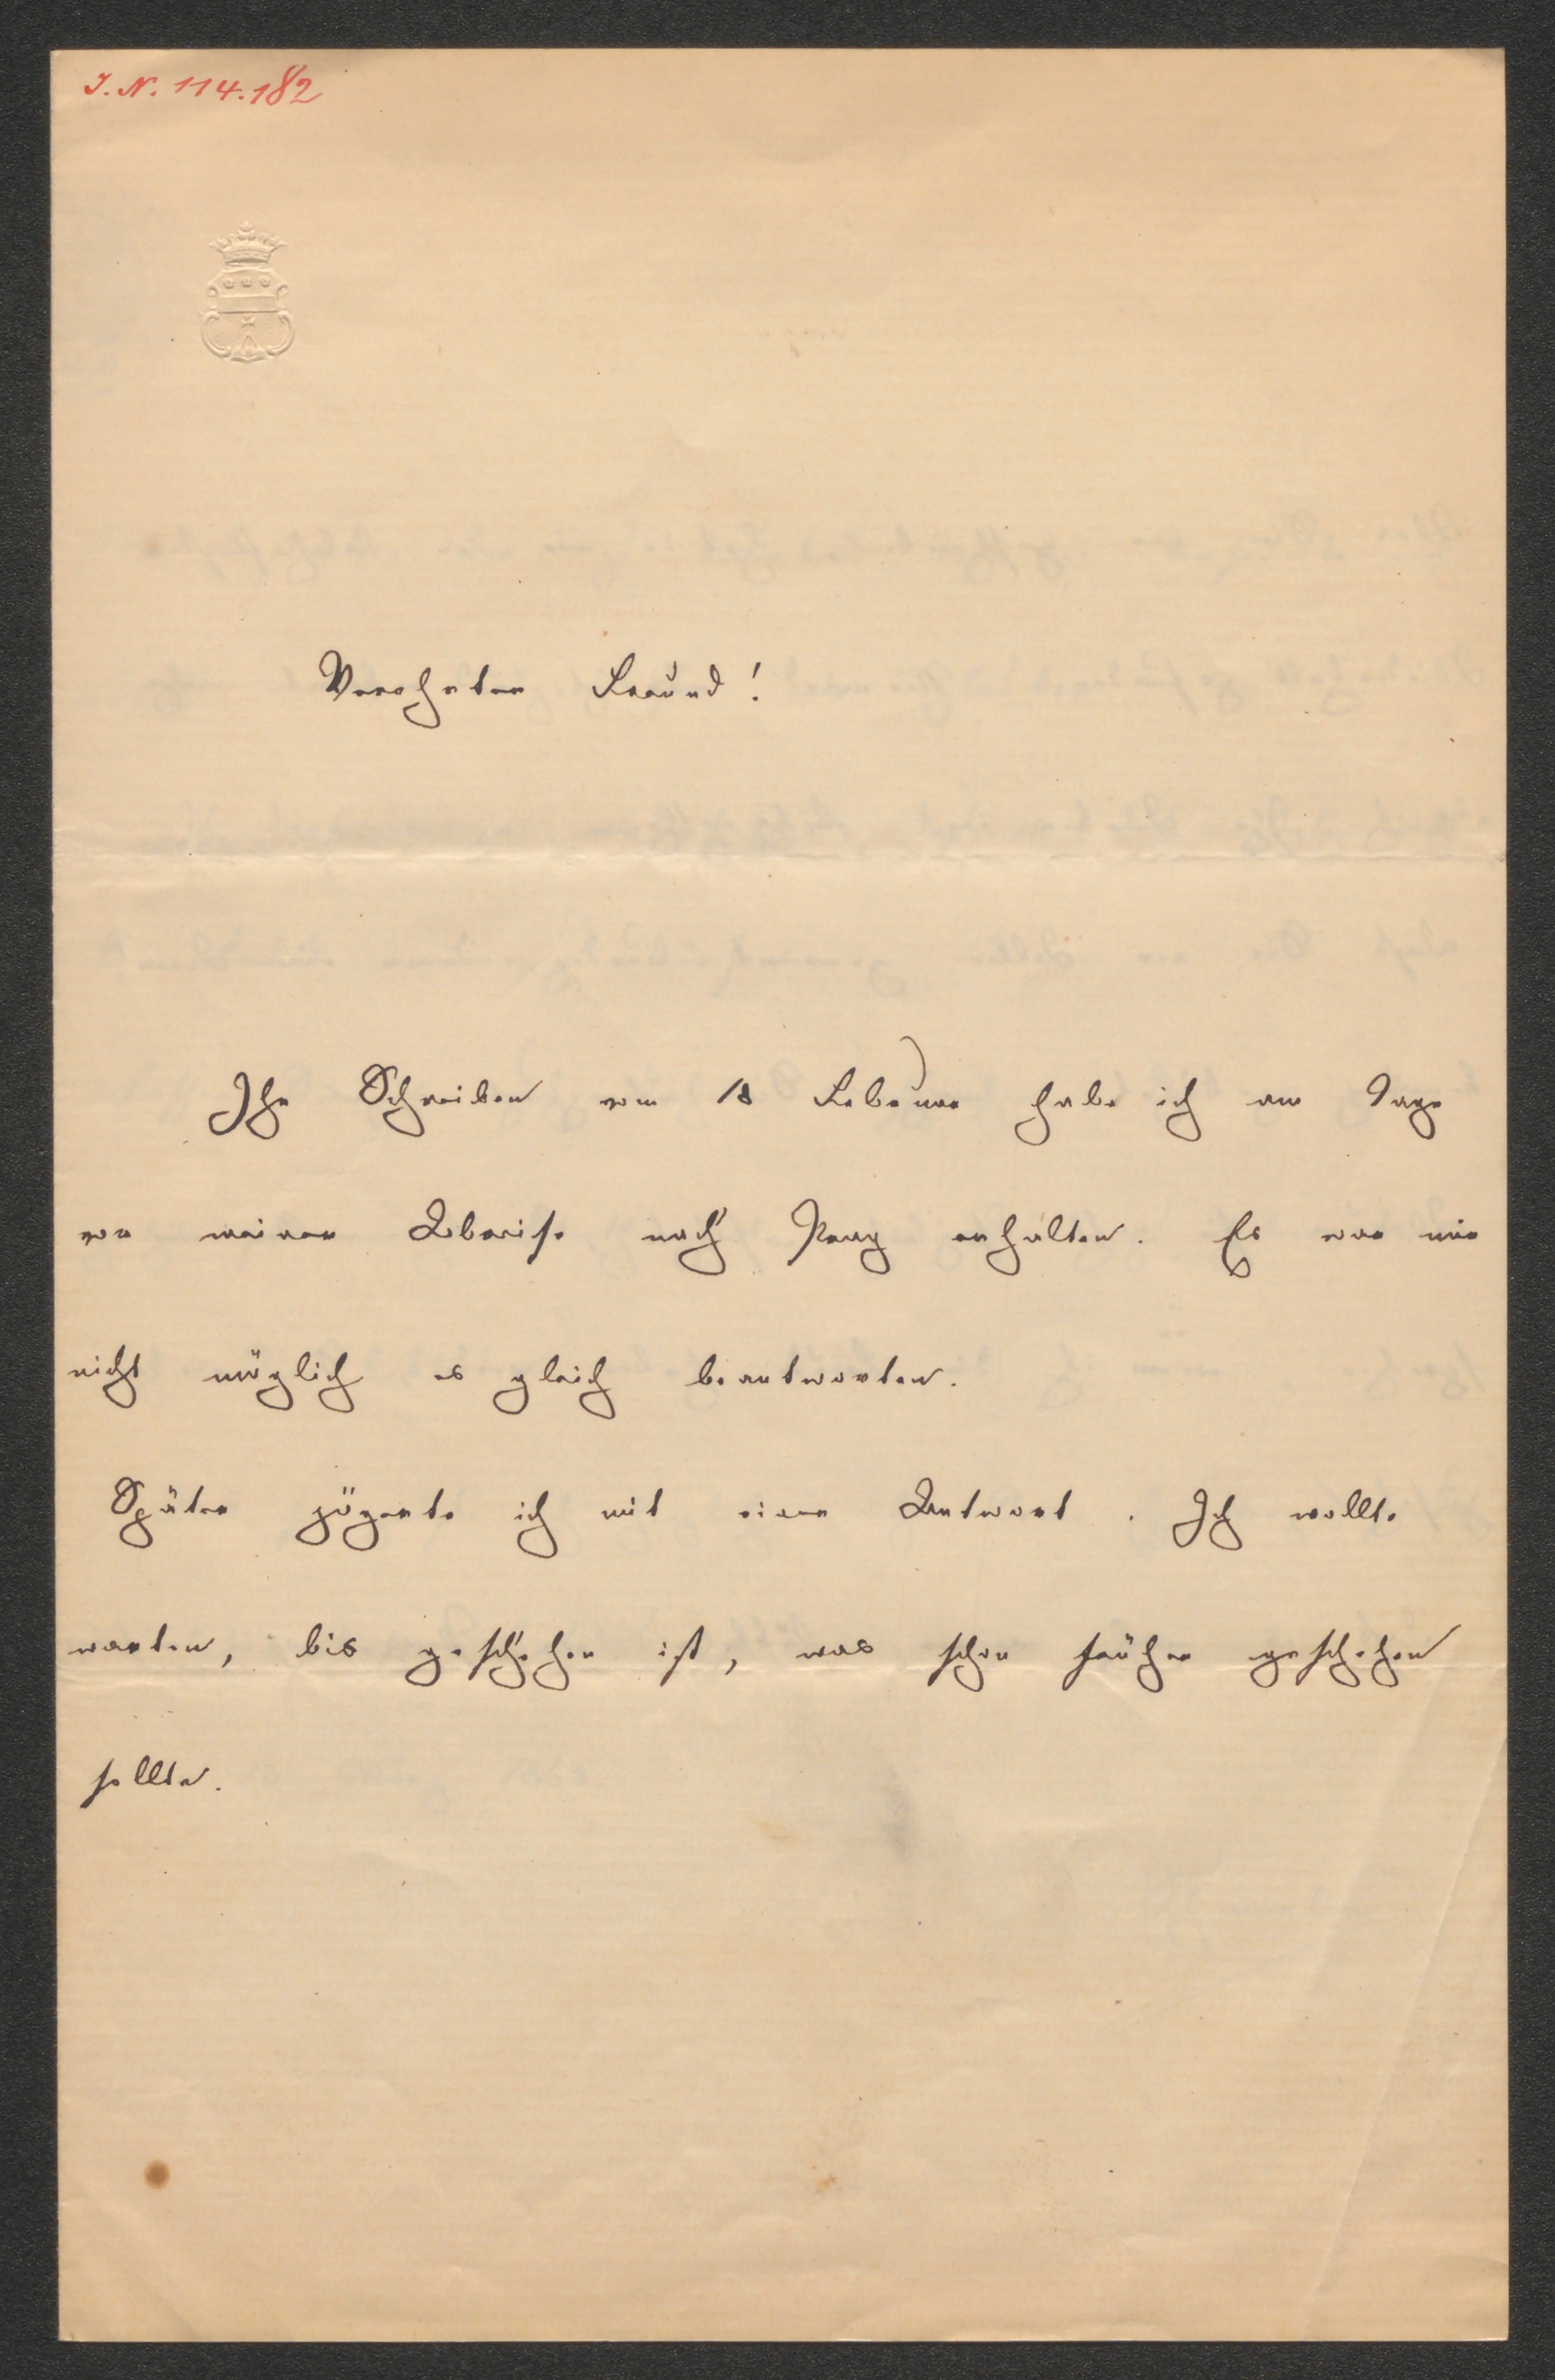 J. N. 114.182
Verehrter Freund!
Ihr Schreiben vom 18 Februar habe ich am Tage
vor meiner Abreise nach Prag erhalten. Es war mir
nicht möglich es gleich beantworten.
Später zögerte ich mit einer Antwort. Ich wollte
warten, bis geschehen ist, was schon früher geschehen
sollte.